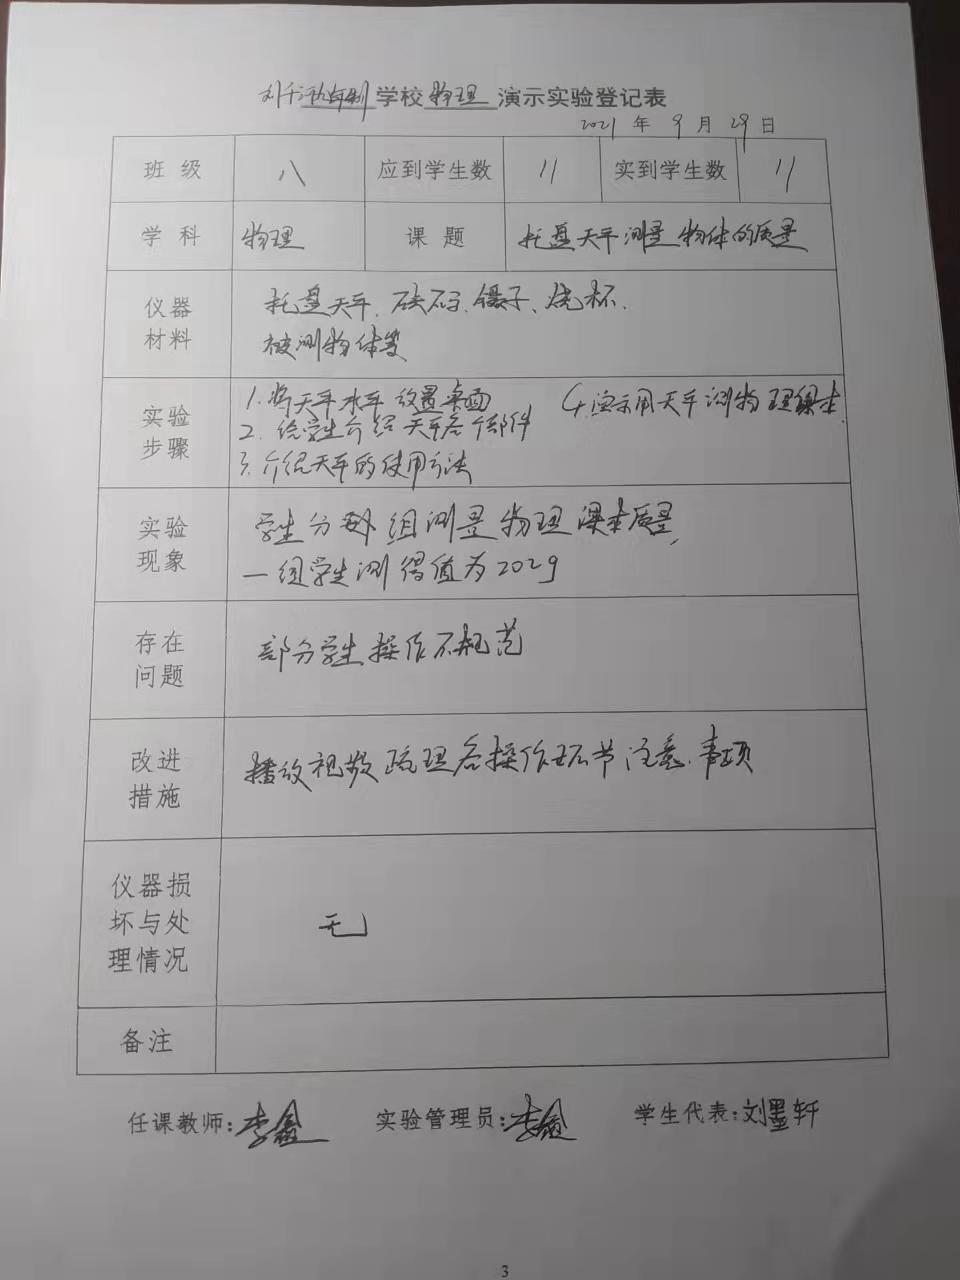 刘千河九年制学校物理演示实验登记表
2021年9月29日
班级 八 应到学生数 11 实到学生数 11
学科 物理 课题 托盘天平测量物体的质量
仪器材料
托盘天平、砝码、镊子、烧杯、
被测物体等
实验步骤
1.将天平水平放置桌面
2.给学生介绍天平各个部件
3.介绍天平的使用方法
4.演示用天平测物理课本.
实验现象
学生分组测量物理课本质量,
一组学生测得值为202g
存在问题
部分学生操作不规范
改进措施
播放视频梳理各操作环节注意事项
仪器损坏与处理情况
无
备注
任课教师:李鑫 实验管理员:李鑫 学生代表:刘墨轩
3